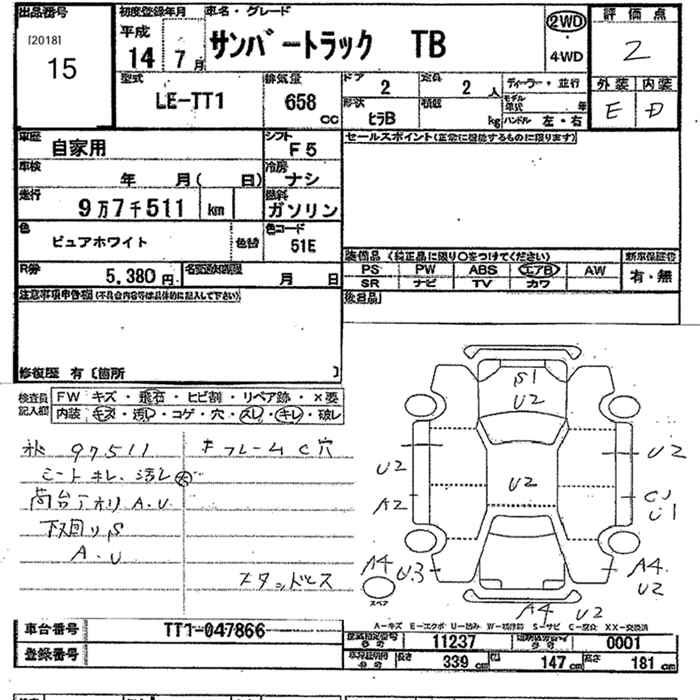 出品番号 初度登録年月 車名・グレード 評価点
[2018] 平成
15 14 7月 サンバートラック TB 2WD 2
4WD
型式 排気量 ドア 定員 ディーラー・並行 外装 内装
2 2人 モデル年式 年
LE-TT1 658 cc 形状 積載 E D
ヒラB kg ハンドル 左・右
車歴 シフト セールスポイント(正常に機能するものに限ります)
自家用 F5
車検 冷房
年 月( 日) ナシ
走行 燃料
9万7千511 km ガソリン
色 色替 色コード
ピュアホワイト 51E
装備品 (純正品に限り○をつけてください) 新車保証書
R券 名変期限 PS PW ABS エアB AW 有・無
5,380円 月 日 SR ナビ TV カワ
注意事項申告欄(不具合内容等は具体的に記入して下さい) 後日品
修復歴 有〔箇所 〕
検査員記入欄 FW キズ・飛石・ヒビ割・リペア跡・×要
内装 キズ・汚レ・コゲ・穴・スレ・キレ・破レ
97511 フレームC穴
シート キレ、
荷台アオリ A.U
下回りS
A.U
スタッドレス
S1
U2
U2
U2
U2
A2
CU
U1
A4
U3
スペア
A4
U2
A4 U2
A-キズ E-エクボ U-凹み W-補修跡 S-サビ C-腐食 XX-交換済
車台番号 TT1-047866
型式指定番号 11237 類別区分番号 0001
登録番号
長さ 339cm 巾 147cm 高さ 181cm